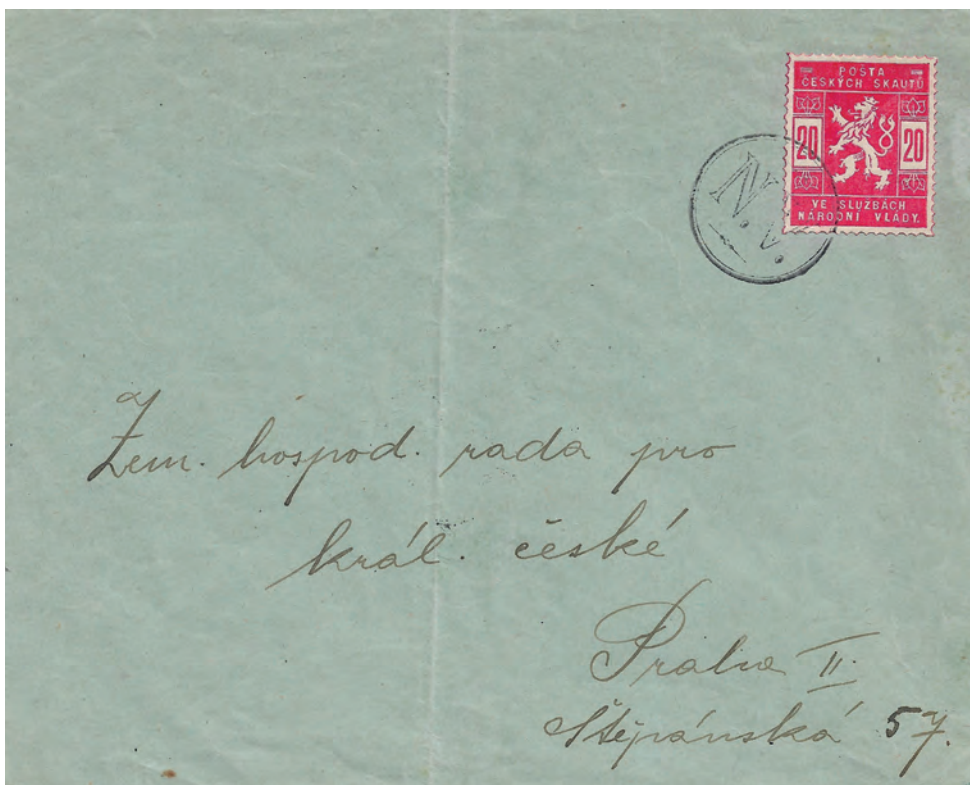 POŠTA
ČESKÝCH SKAUTŮ
20 20
VE SLUŽBÁCH
NÁRODNÍ VLÁDY.
N.V.
Zem. hospod. rada pro
král. české
Praha II.
Štěpánská 57.